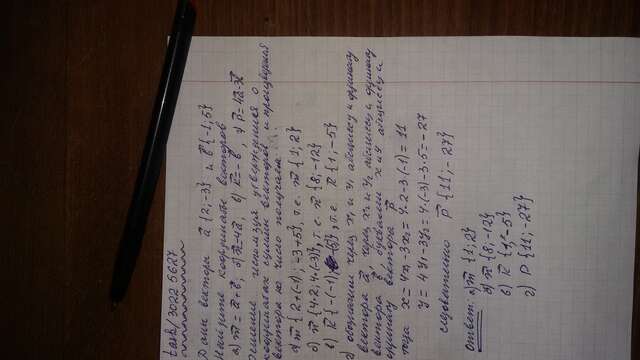 task/30225627
Даны векторы a {2;-3} и b {-1;5}
Найдите координаты векторов
а) m = a+b, б) n=4a, в) k=-b, г) p=4a-3b
Решение используя утверждения о
координатах суммы векторов и произведения
вектора на число получаем:
а) m {2+(-1); -3+5}, т.е. m {1;2}
б) n {4·2; 4·(-3)}, т.е. n {8;-12}
в) k {-(-1); -(5)}, т.е. k {1;-5}
г) обозначим через x₁ и y₁ абсциссу и ординату
вектора a, через x₂ и y₂ абсциссу и ординату
вектора b, буквами x и y абсциссу и
ординату вектора p
тогда x=4x₁-3x₂=4·2-3·(-1)=11
y=4y₁-3y₂=4·(-3)-3·5=-27
следовательно p {11;-27}
Ответ: а) m {1;2}
б) n {8;-12}
в) k {1;-5}
г) p {11;-27}